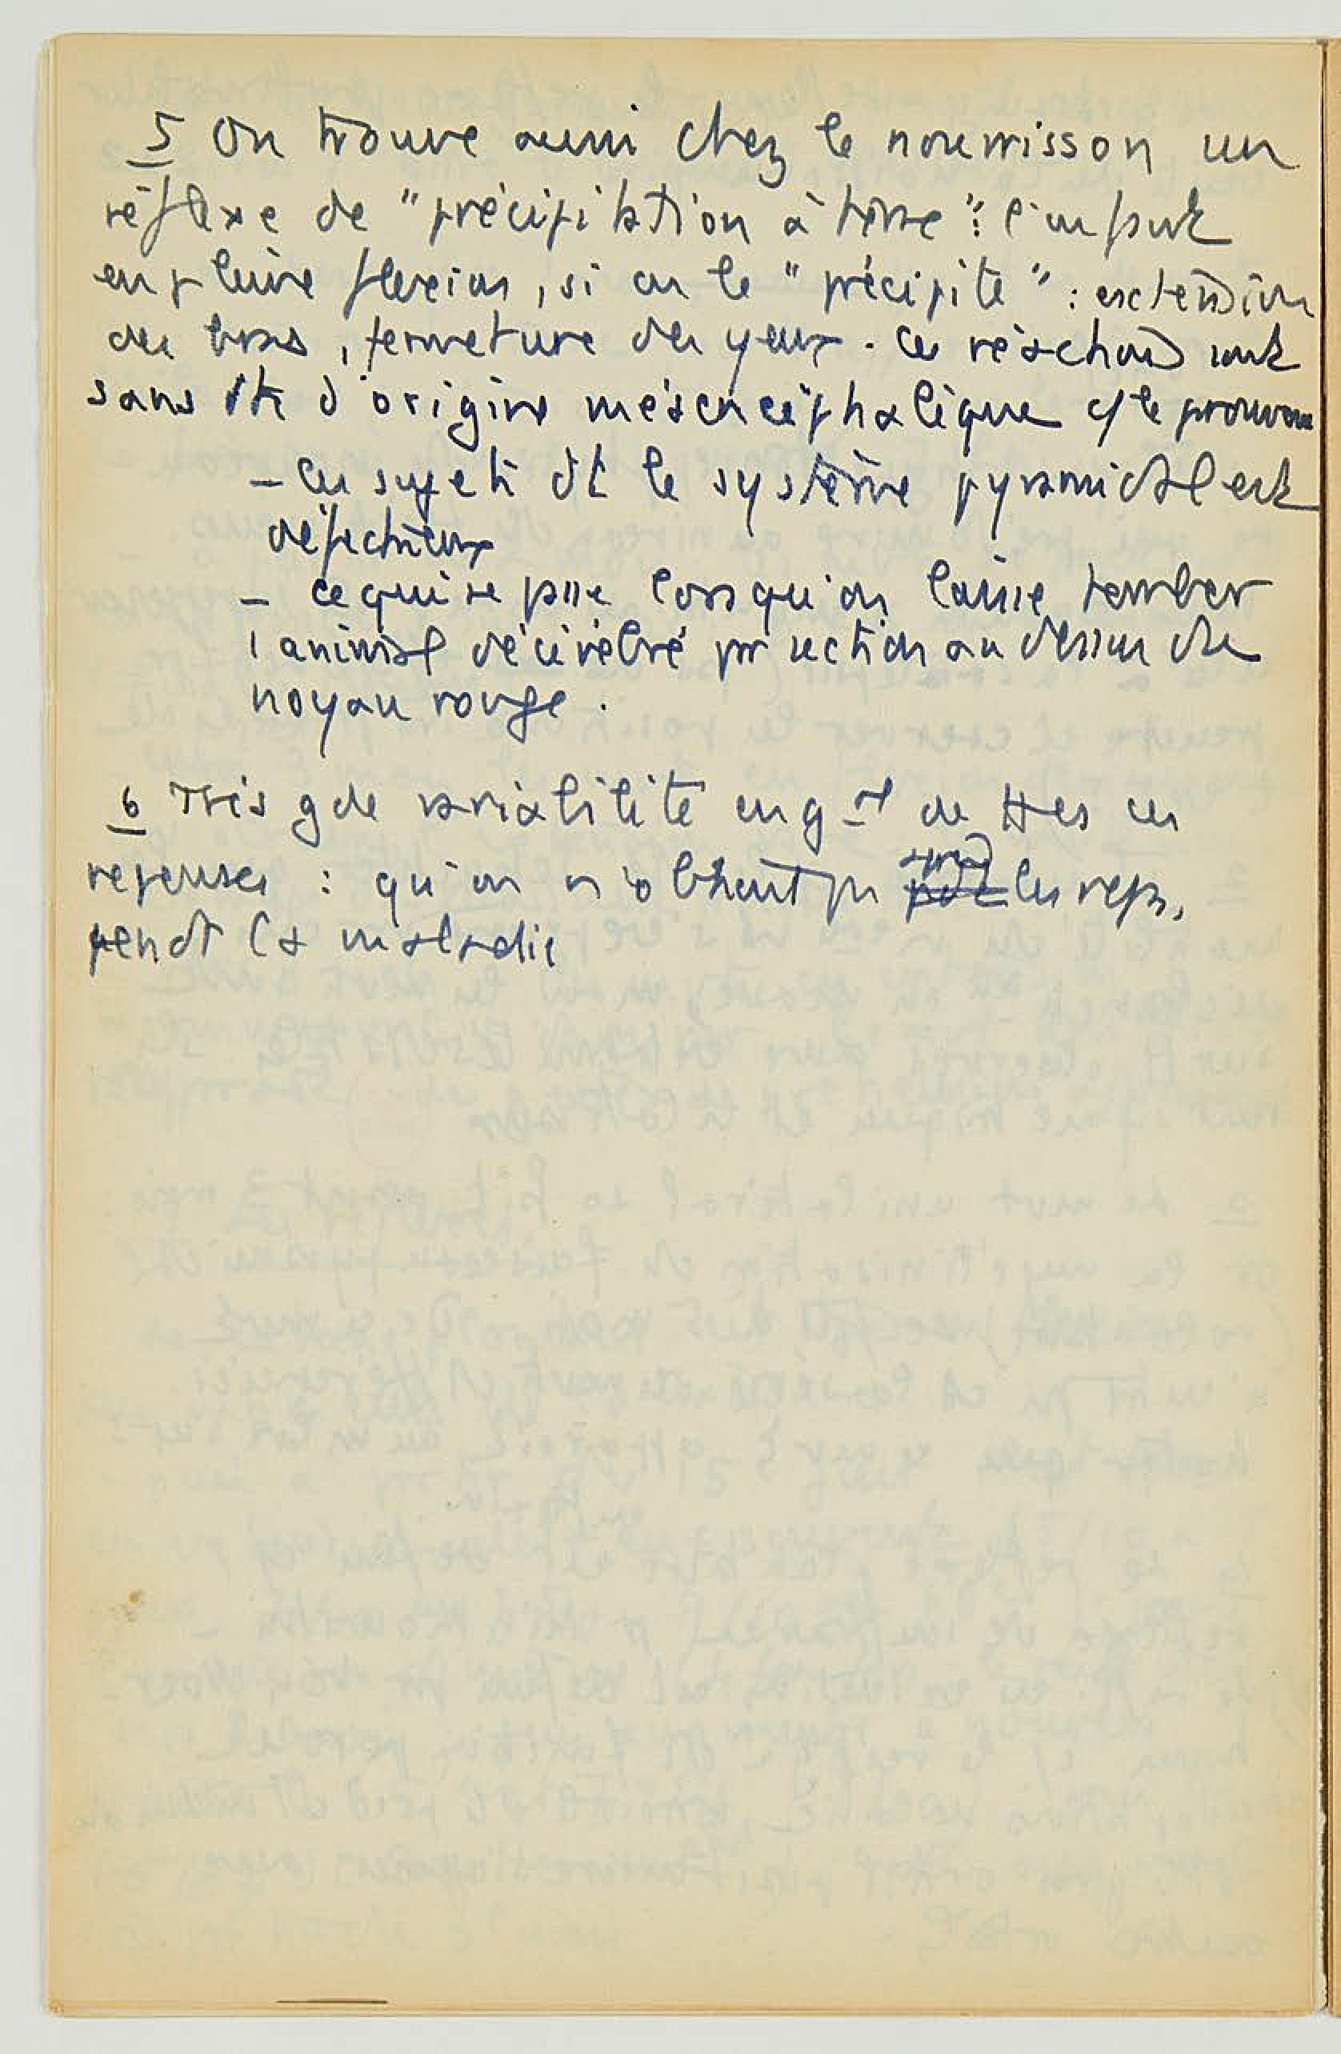 5 On trouve aussi chez le nourrisson un
réflexe de "précipitation à terre" : l'enfant
en pleine flexion, si on le "précipite" : extension
des bras, fermeture des yeux. Ces réactions sont
sans dte d'origine mésencéphalique c/ le prouvent
– les sujets dt le système pyramidal est
défectueux
– ce qui se passe lorsqu'on laisse tomber
l'animal décérébré par section au dessus du
noyau rouge.
6 Très gde variabilité en gal de ttes ces
réponses : qu'on n'obtient pas les reps,
pendt la maladie